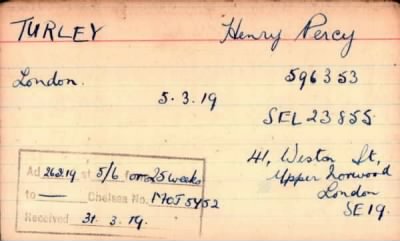 TURLEY Henry Percy
London. 596353
5.3.19
SEL 23855
41, Weston St,
Upper Norwood
London
SE19.
Ad 26.2.19 at 5/6 for 25 weeks
to — Chelsea No. MOT 5452
Received 31.3.19.